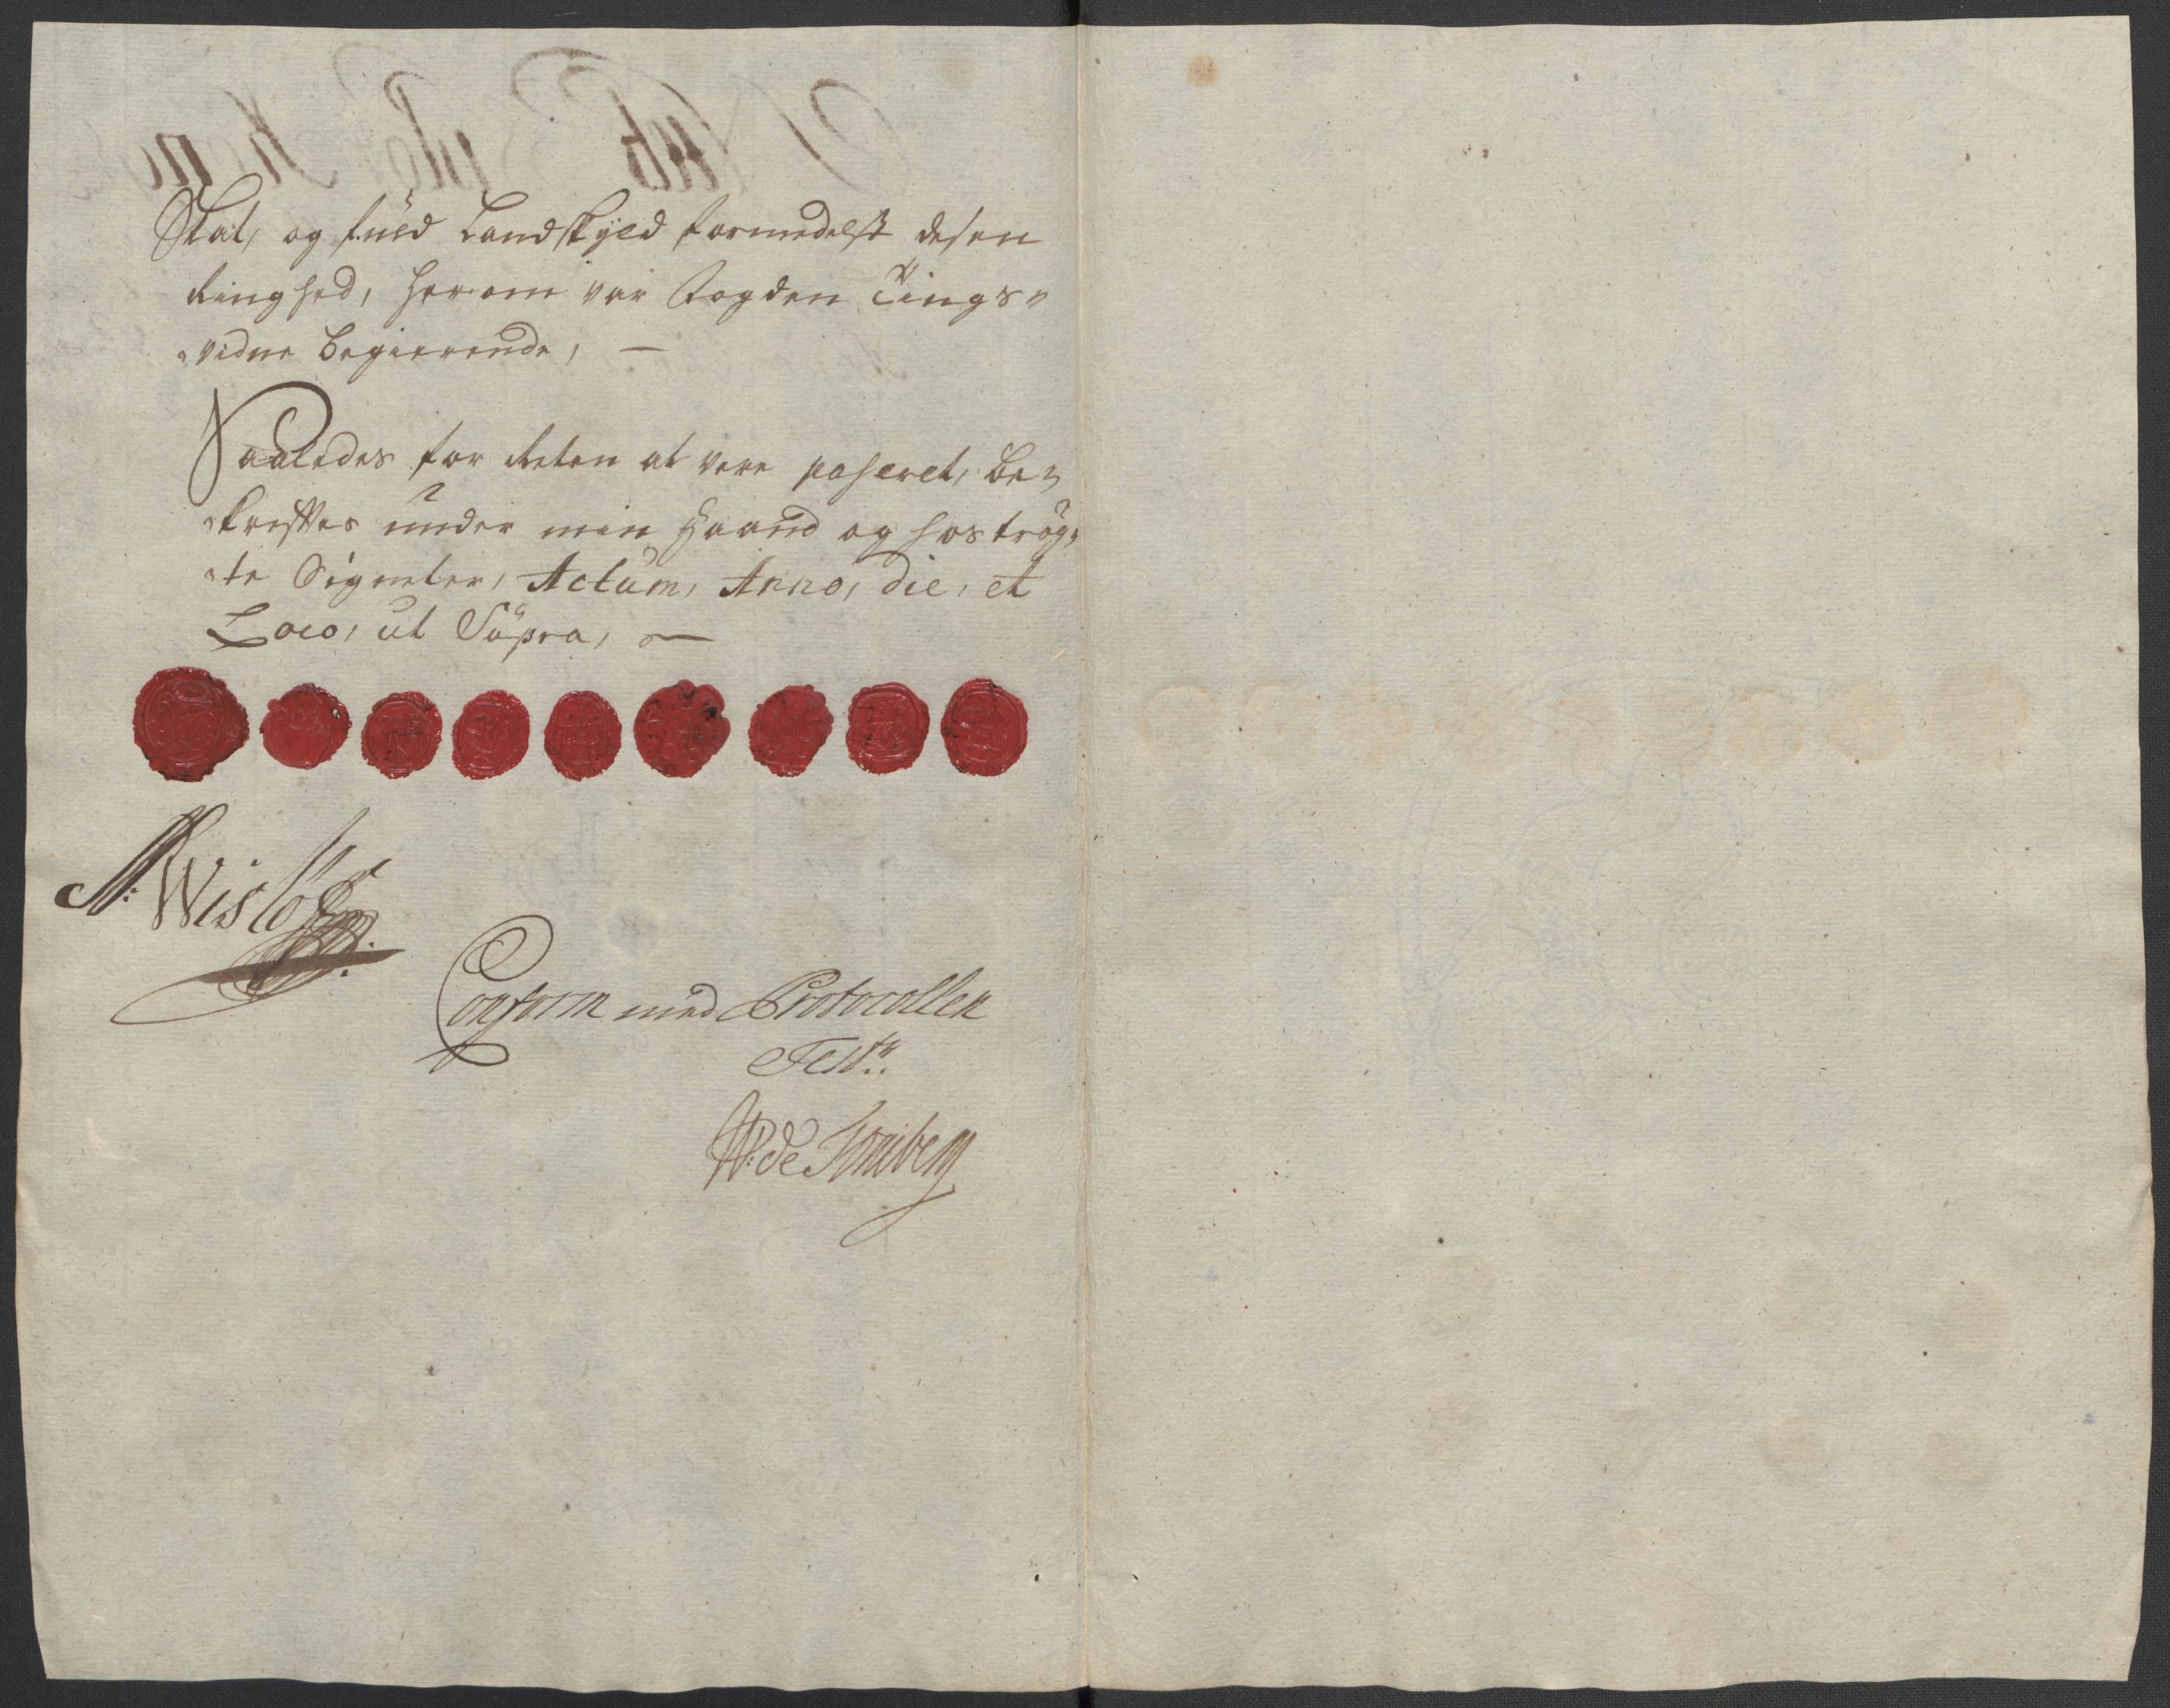 Skat, og fuld Landskyld formedelst desen
Ringhed, herom var Fogden Tings-
vidne Begierende, —
Saaledes for Retten at vere paseret, Be-
krefftes under min Haand og hoströg-
te Signeter, Actum, Anno, die, et
Loco, ut Supra, —
Conform med Protocollen
Test: